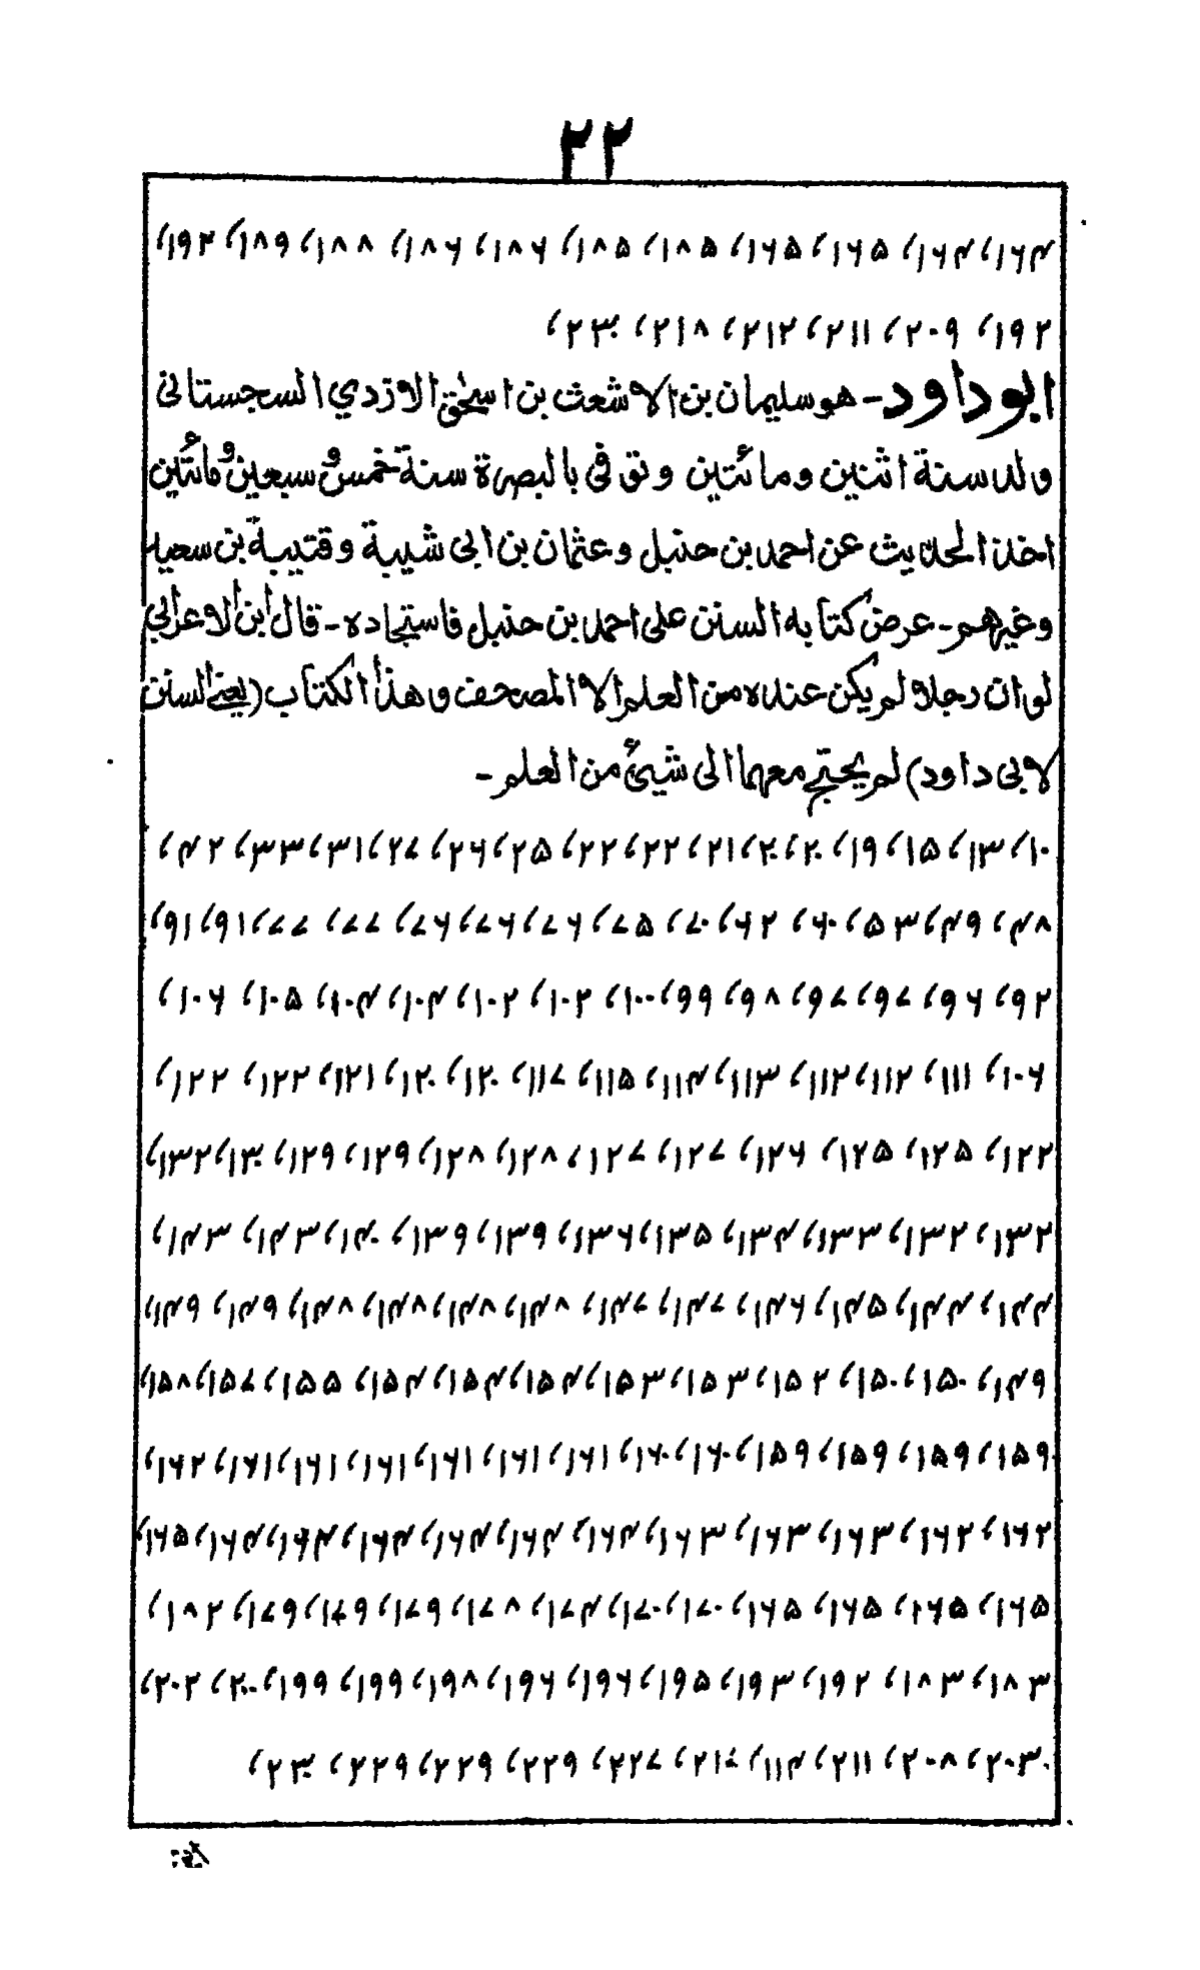 ۲۲
۱۶۴، ۱۶۴، ۱۶۵، ۱۶۵، ۱۸۵، ۱۸۵، ۱۸۶، ۱۸۶، ۱۸۸، ۱۸۹، ۱۹۲،
۱۹۲، ۲۰۹، ۲۱۱، ۲۱۲، ۲۱۸، ۲۳۰،
ابو داود - هو سليمان بن الاشعث بن اسحٰق الازدي السجستانى
ولد سنة اثنين ومائتين وتوفى بالبصرة سنة خمس و سبعين ومائتين
اخذ الحديث عن احمد بن حنبل وعثمان بن ابى شيبة وقتيبة بن سعيد
وغيرهم - عرض كتابه السنن على احمد بن حنبل فاستجاده - قال ابن الاعرابي
لو ان رجلا لم يكن عنده من العلم الا المصحف وهذا الكتاب (يعنى السنن
لابى داود) لم يحتج معهما الى شيئ من العلم -
۱۰، ۱۳، ۱۵، ۱۹، ۲۰، ۲۰، ۲۱، ۲۲، ۲۲، ۲۵، ۲۶، ۲۷، ۳۱، ۳۳، ۴۲،
۴۸، ۴۹، ۵۳، ۶۰، ۶۲، ۷۰، ۷۵، ۷۶، ۷۶، ۷۶، ۷۷، ۷۷، ۹۱، ۹۱،
۹۲، ۹۶، ۹۷، ۹۷، ۹۸، ۹۹، ۱۰۰، ۱۰۲، ۱۰۲، ۱۰۴، ۱۰۴، ۱۰۵، ۱۰۶،
۱۰۶، ۱۱۱، ۱۱۲، ۱۱۲، ۱۱۳، ۱۱۴، ۱۱۵، ۱۱۷، ۱۲۰، ۱۲۰، ۱۲۱، ۱۲۲، ۱۲۲،
۱۲۲، ۱۲۵، ۱۲۵، ۱۲۶، ۱۲۷، ۱۲۷، ۱۲۸، ۱۲۸، ۱۲۹، ۱۲۹، ۱۳۰، ۱۳۲،
۱۳۲، ۱۳۲، ۱۳۳، ۱۳۴، ۱۳۵، ۱۳۶، ۱۳۹، ۱۳۹، ۱۴۰، ۱۴۳، ۱۴۳،
۱۴۴، ۱۴۴، ۱۴۵، ۱۴۶، ۱۴۷، ۱۴۷، ۱۴۸، ۱۴۸، ۱۴۸، ۱۴۸، ۱۴۹، ۱۴۹،
۱۴۹، ۱۵۰، ۱۵۰، ۱۵۲، ۱۵۳، ۱۵۳، ۱۵۴، ۱۵۴، ۱۵۴، ۱۵۵، ۱۵۷، ۱۵۸،
۱۵۹، ۱۵۹، ۱۵۹، ۱۵۹، ۱۶۰، ۱۶۰، ۱۶۱، ۱۶۱، ۱۶۱، ۱۶۱، ۱۶۱، ۱۶۱، ۱۶۲،
۱۶۲، ۱۶۲، ۱۶۳، ۱۶۳، ۱۶۳، ۱۶۴، ۱۶۴، ۱۶۴، ۱۶۴، ۱۶۴، ۱۶۴، ۱۶۵،
۱۶۵، ۱۶۵، ۱۶۵، ۱۶۵، ۱۷۰، ۱۷۰، ۱۷۴، ۱۷۸، ۱۷۹، ۱۷۹، ۱۷۹، ۱۸۲،
۱۸۳، ۱۸۳، ۱۹۲، ۱۹۳، ۱۹۵، ۱۹۶، ۱۹۶، ۱۹۸، ۱۹۹، ۱۹۹، ۲۰۰، ۲۰۲،
۲۰۳، ۲۰۸، ۲۱۱، ۱۱۴، ۲۱۷، ۲۲۷، ۲۲۹، ۲۲۹، ۲۲۹، ۲۳۰،